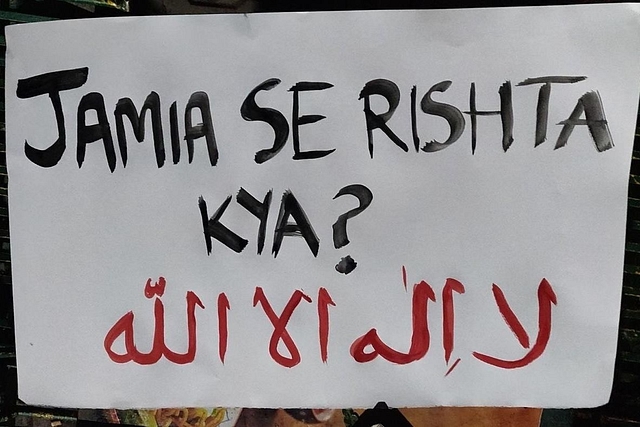 JAMIA SE RISHTA
KYA?
لا إلٰه الا اللّٰه